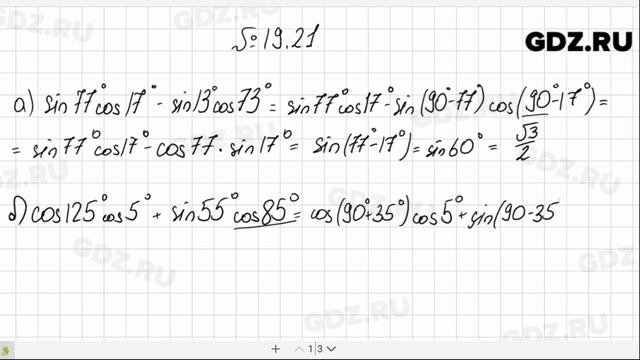 № 19.21
GDZ.RU
а) sin77°cos17° - sin13°cos73° = sin77°cos17° - sin(90°-77°) cos(90°-17°) =
= sin77°cos17° - cos77·sin17° = sin(77°-17°) = sin60° = √3/2
б) cos125°cos5° + sin55°cos85° = cos(90°+35°)cos5° + sin(90-35
1|3